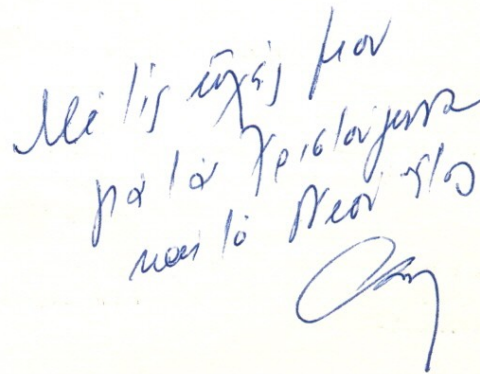 Μὲ τὶς εὐχές μου
γιὰ τὰ Χριστούγεννα
καὶ τὸ Νέον ἔτος